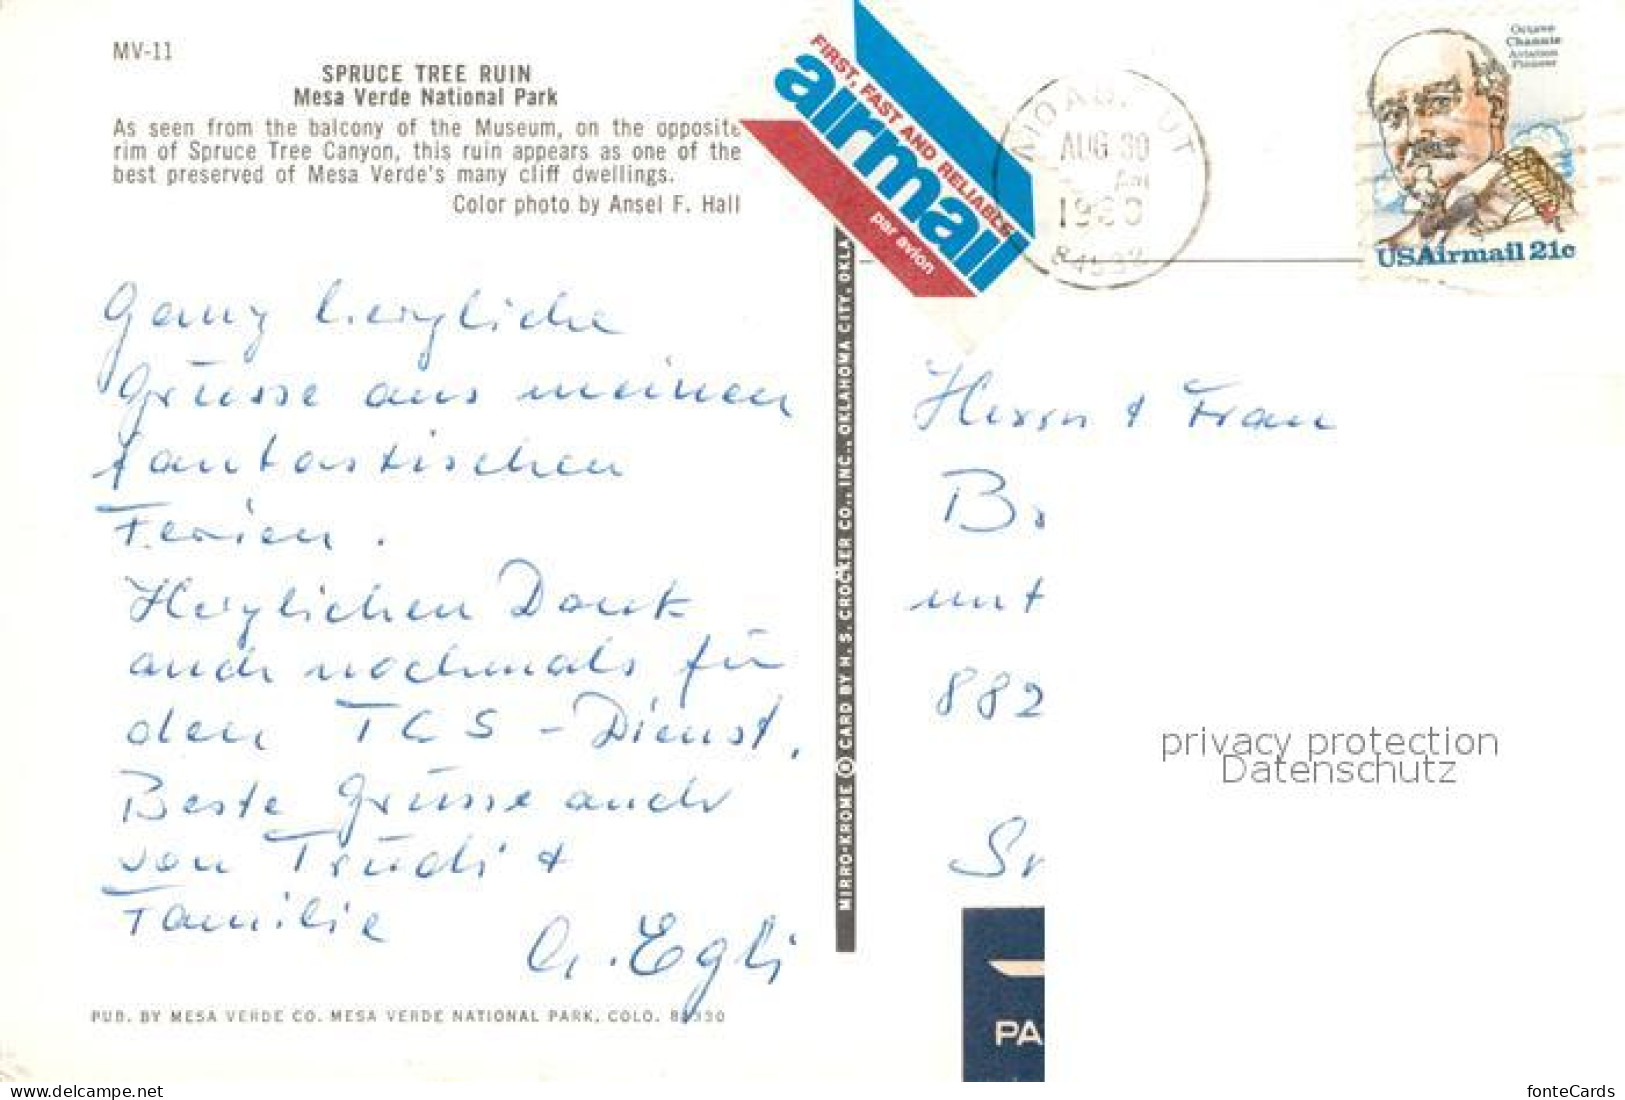 MV-11
SPRUCE TREE RUIN
Mesa Verde National Park
As seen from the balcony of the Museum, on the opposite
rim of Spruce Tree Canyon, this ruin appears as one of the
best preserved of Mesa Verde's many cliff dwellings.
Color photo by Ansel F. Hall
Ganz herzliche
Grüsse aus meinen
fantastischen
Ferien.
Herzlichen Dank
auch nochmals für
den TCS-Dienst.
Beste Grüsse auch
von Trudi +
Familie
G. Egli
PUB. BY MESA VERDE CO. MESA VERDE NATIONAL PARK, COLO. 81330
MIRRO-KROME ® CARD BY H. S. CROCKER CO., INC., OKLAHOMA CITY, OKLA
FIRST, FAST AND RELIABLE
airmail
par avion
MOAB, UT
AUG 30
AM
1980
84532
Octave
Chanute
Aviation
Pioneer
USAirmail 21c
Herrn + Frau
Br
unt
882
Sr
PA
privacy protection
Datenschutz
www.delcampe.net
fonteCards